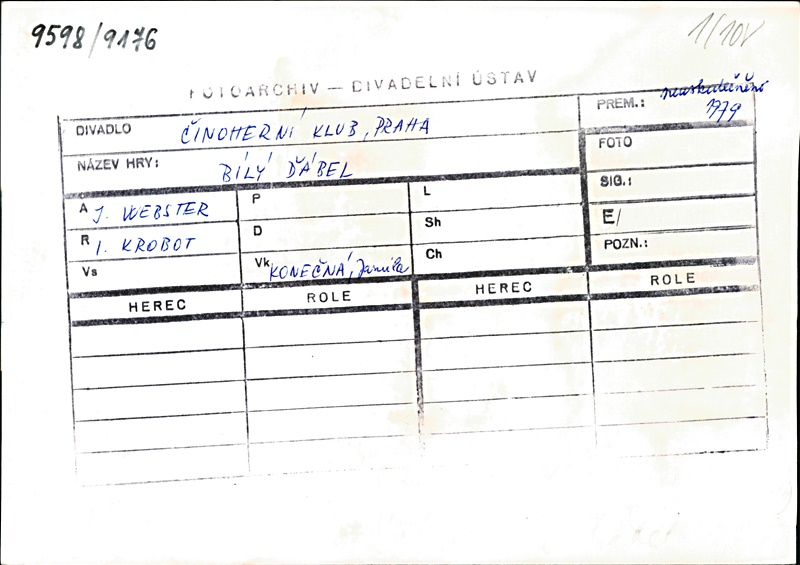 9598/9176
1/10V
FOTOARCHIV — DIVADELNÍ ÚSTAV
DIVADLO ČINOHERNÍ KLUB, PRAHA
PREM.: neuskutečněno
1979
NÁZEV HRY: BÍLÝ ĎÁBEL
FOTO
SIG.:
A J. WEBSTER P L
E/
R I. KROBOT D Sh
POZN.:
Vs Vk KONEČNÁ, Jamila Ch
HEREC ROLE HEREC ROLE